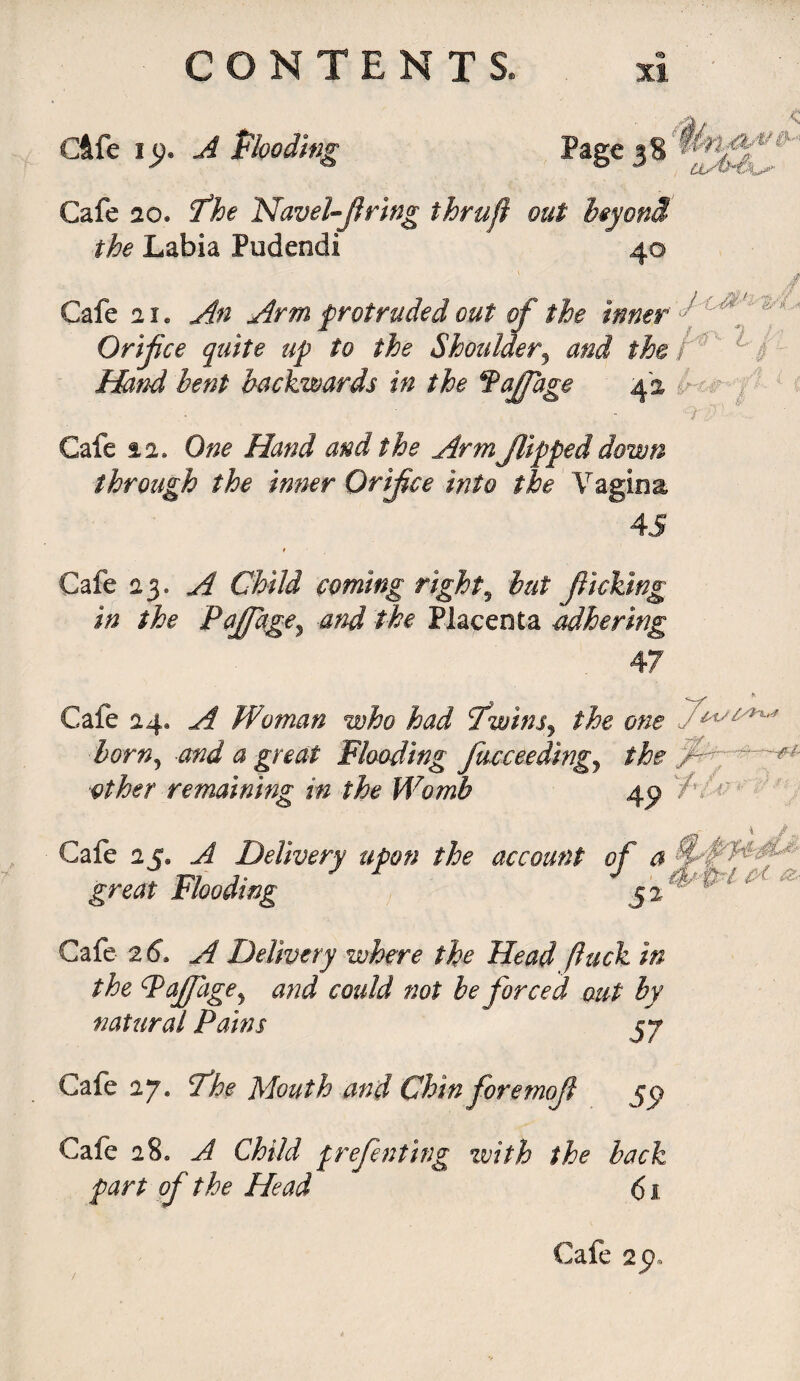 CONTENTS. xi
Cáſe 19. A Flooding Page 38
Caſe 20. The Navel-ſtring thruſt out beyond
the Labia Pudendi 40
Caſe 21. An Arm protruded out of the inner
Orifice quite up to the Shoulder, and the
Hand bent backwards in the Paſſage 42
Caſe 22. One Hand and the Arm ſlipped down
through the inner Orifice into the Vagina
45
Caſe 23. A Child coming right, but ſticking
in the Paſſage, and the Placenta adhering
47
Caſe 24. A Woman who had Twins, the one
born, and a great Flooding ſucceeding, the
other remaining in the Womb 49
Caſe 25. A Delivery upon the account of a
great Flooding 52
Caſe 26. A Delivery where the Head ſtuck in
the Paſſage, and could not be forced out by
natural Pains 57
Caſe 27. The Mouth and Chin foremoſt 59
Caſe 28. A Child preſenting with the back
part of the Head 61
Caſe 29.